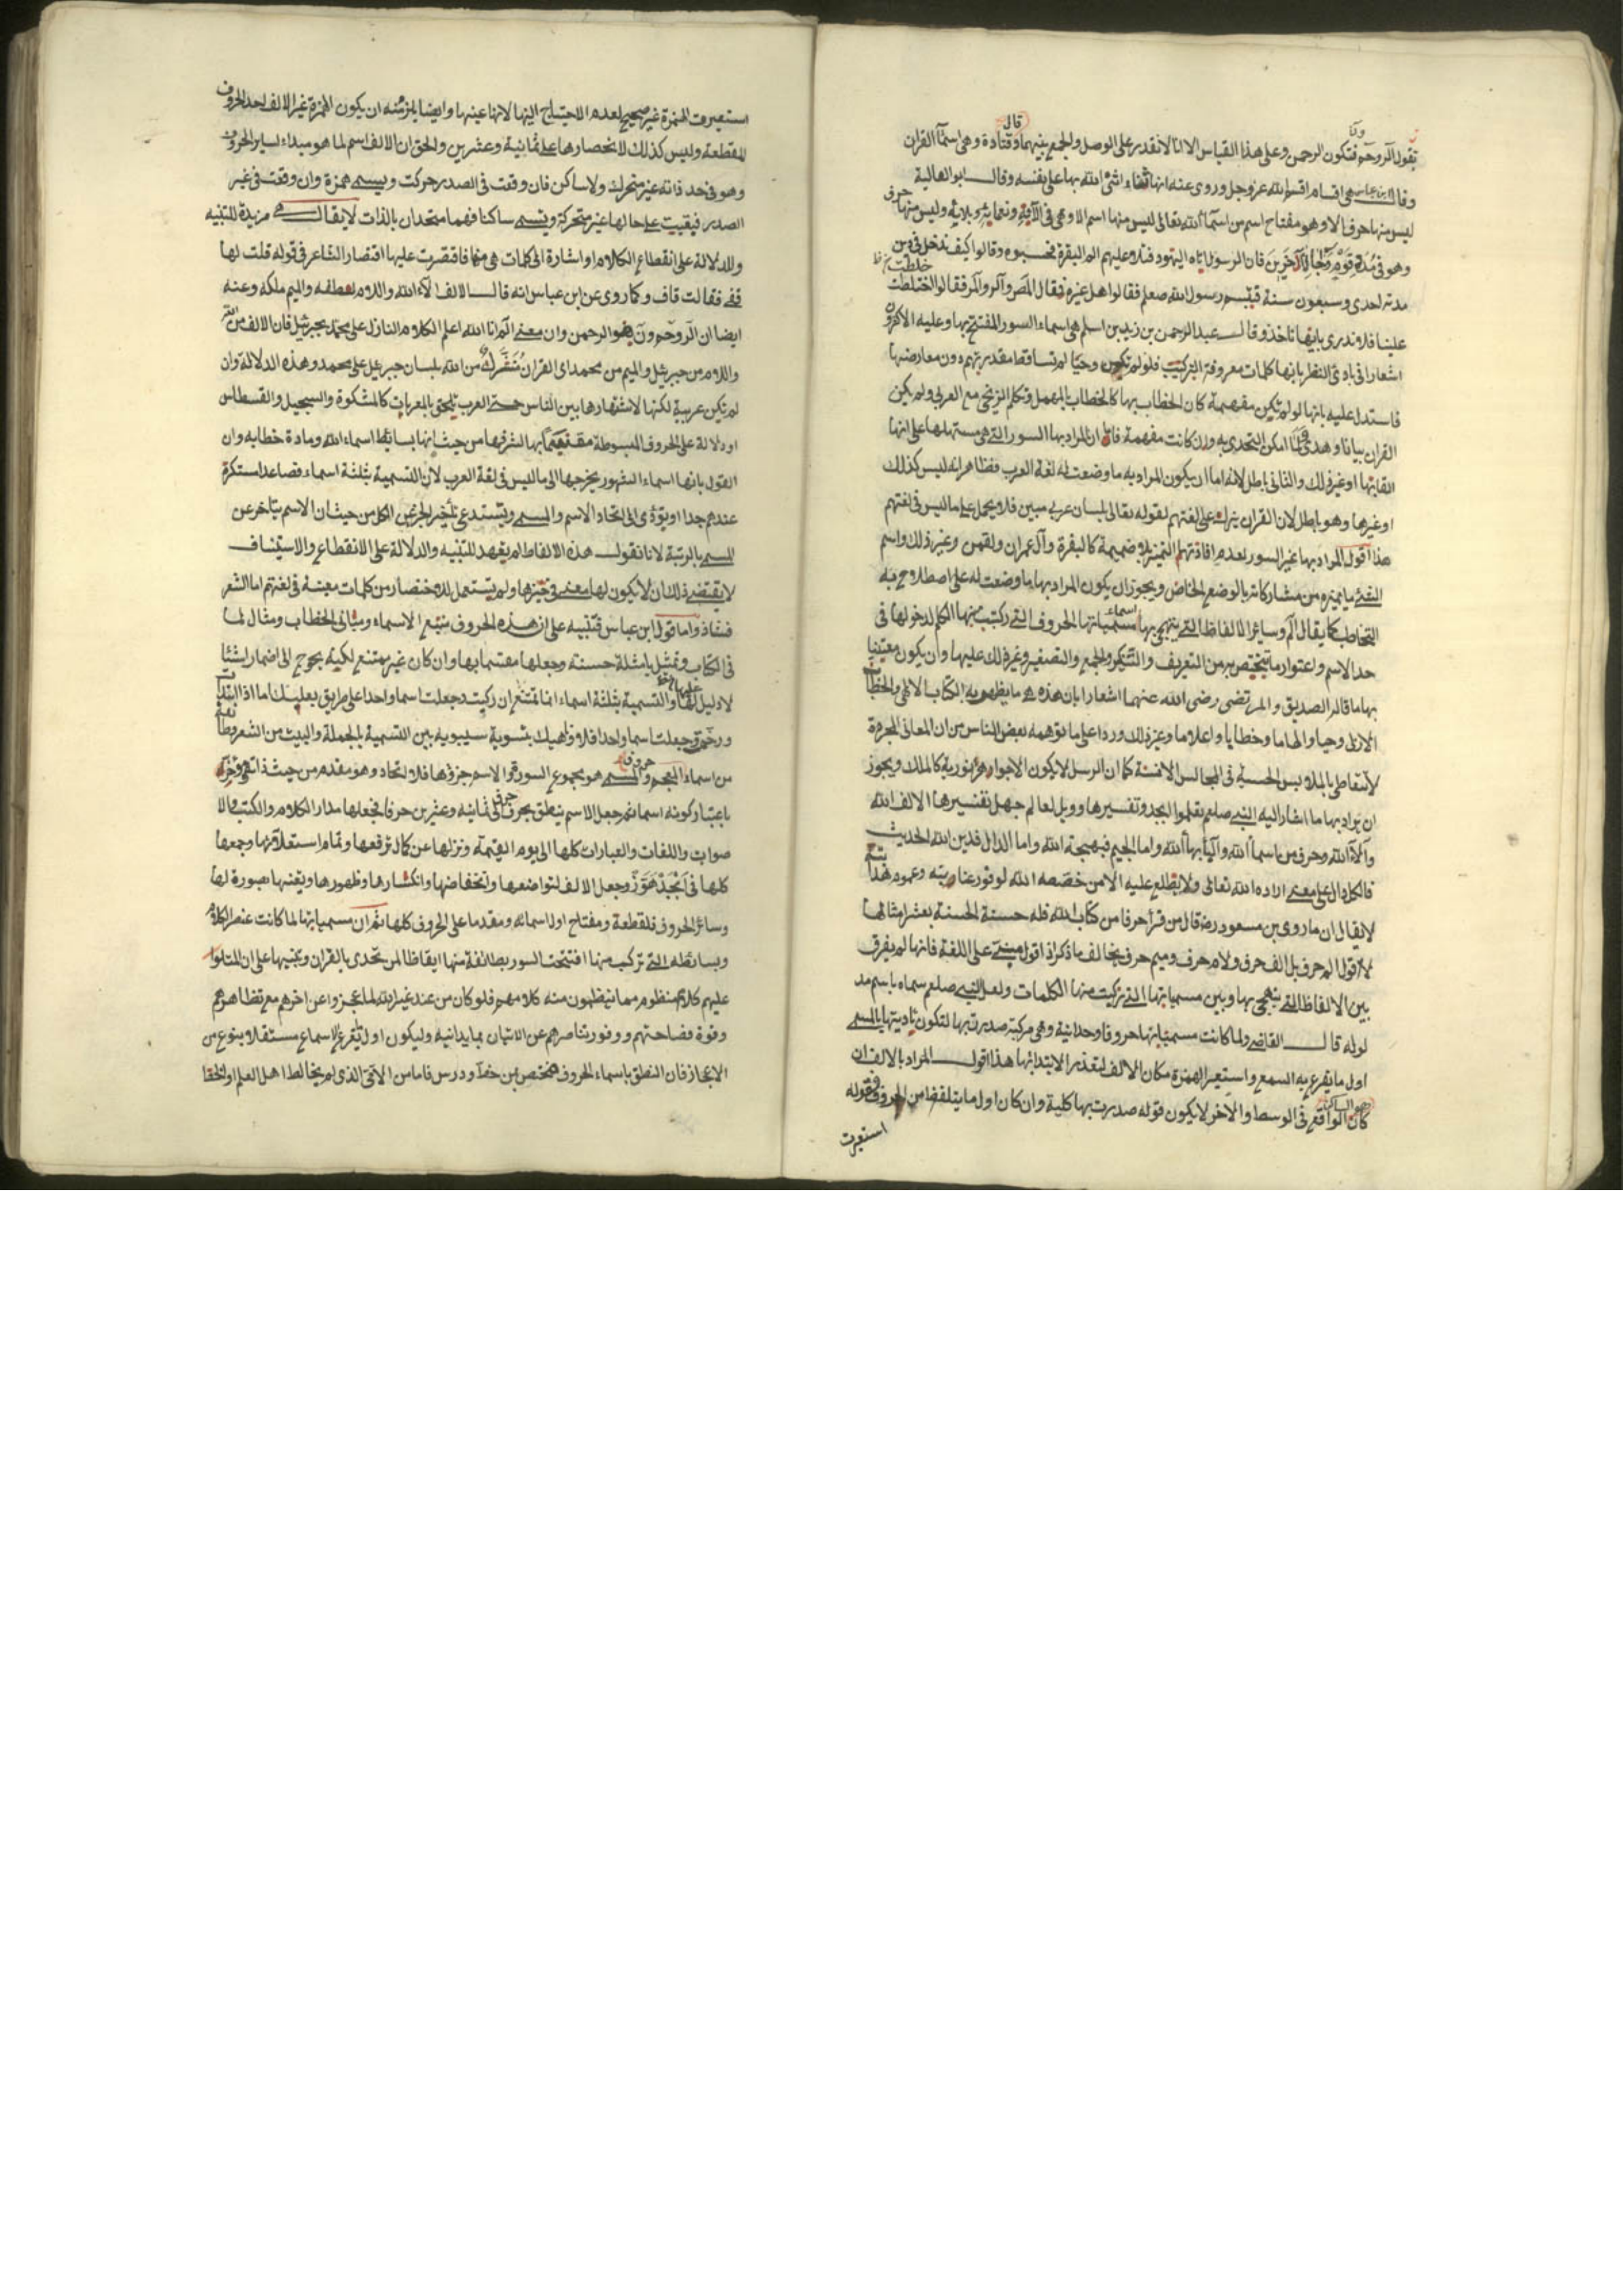 تقول الر وحم ون فتكون الرحمن وعلى هذا القياس الا انا لا نقدر على الوصل والجمع بينهما وقال قتادة وهي اسماء القرآن
وقال ابن عباس هي اقسام اقسم الله عز وجل وروى عنه انها ثناء اثنى الله بها على نفسه وقال ابو العالية
ليس منها حرف الا وهو مفتاح اسم من اسماء الله تعالى ليس منها اسم الا وهي في آلائه ونعمائه وبلائه وليس منها حرف
وهو في مدة قوم وآجال آخرين فان الرسول اتاه اليهود فتلا عليهم الم البقرة فحسبوه وقالوا كيف ندخل في دين
مدته احدى وسبعون سنة فتبسم رسول الله صلعم فقالوا هل غيره فقال المص والر والمر فقالوا خلطت
علينا فلا ندري بايها ناخذ وقال عبد الرحمن بن زيد بن اسلم هي اسماء السور المفتتح بها وعليه الاكثرون
اشعارا في بادئ النظر بانها كلمات معروفة التركيب فلو لم تكن وحيا لم تتساقط مقدرتهم دون معارضتها
فاستدل عليه بانها لو لم تكن مفهمة كان الخطاب بها كالخطاب بالمهمل وتكلم الزنجي مع العربي ولم يكن
القران بيانا وهدى ولما امكن التحدي به وان كانت مفهمة فاما ان المراد بها السور التي هي مستهلها على انها
القابها او غير ذلك والثاني باطل لانه اما ان يكون المراد به ما وضعت له لغة العرب فظاهر انه ليس كذلك
او غيرها وهو باطل لان القران نزل على لغتهم لقوله تعالى بلسان عربي مبين فلا يحمل على ما ليس في لغتهم
هذا اقول المراد بها غير السور لعدم افادتها التميز بلا ضميمة كالبقرة وآل عمران ولقمن وغير ذلك واسم
الشئ ما يميزه من مشاركاته بالوضع الخاص ويجوز ان يكون المراد بها ما وضعت له على اصطلاح به
التخاطب كما يقال الم وسائر الالفاظ التي يتهجى بها اسماء مسمياتها الحروف التي ركبت منها الكلم لدخولها في
حد الاسم واعتوار ما يختص به من التعريف والتنكير والجمع والتصغير وغير ذلك عليها وان يكون
بها ما قاله الصديق والمرتضى رضى الله عنهما اشعارا بان هذه ما يظهر به الكتاب الالهي والخطاب
الازلي وحيا والهاما وخطابا واعلاما وغير ذلك وردا على ما توهمه بعض الناس من ان المعاني المجردة
الحسية في المجالس الانسية كما ان الرسل لا يكون الا نورية كالملك ويجوز
ان يراد بها ما اشار اليه النبي صلعم تعلموا ابجد وتفسيرها وويل لعالم جهل تفسيرها الالف الله
وآلاء الله وحرف من اسماء الله والباء بهاء الله واما الجيم فبهجة الله واما الدال فدين الله الحديث
فالكل دال على معنى اراده الله تعالى ولا يطلع عليه الا من خصصه الله لوفور عنايته وعموم
لا يقال ان ما روى بن مسعود رضه قال من قرأ حرفا من كتاب الله فله حسنة الحسنة بعشر امثالها
لا اقول الم حرف بل الف حرف ولام حرف وميم حرف يخالف ما ذكر اذ اقول مبني على اللغة فانها لم يفرق
بين الالفاظ التي يتهجى بها وبين مسمياتها التي تركبت منها الكلمات ولعل النبي صلعم سماه باسم مد
لوله قال القاضي ولما كانت مسمياتها حروفا وحدانية وهي مركبة صدرت بها لتكون تأديتها بالمسمى
اول ما يقرع به السمع واستعير الهمزة مكان الالف لتعذر الابتداء بها هذا اقول المراد بالالف ان
كان الواقع في الوسط والآخر وهو الساكن لا يكون قوله صدرت بها كلية وان كان اول ما يتلفظ من الحروف فقوله
استعيرت
استعيرت الهمزة غير صحيح لعدم الاحتياج اليها لانها عينها وايضا يلزم منه ان يكون الهمزة غير الالف احد الحروف
المقطعة وليس كذلك لانحصارها على ثمانية وعشرين والحق ان الالف اسم لما هو مبداء لسائر الحروف
وهو في حد ذاته غير متحرك ولا ساكن فان وقعت في الصدر حركت ويسمى همزة وان وقعت في غير
الصدر فبقيت على حالها غير متحركة وتسمى ساكنا فهما متحدان بالذات لا يقال هي مزيدة للتنبيه
والدلالة على انقطاع الكلام او اشارة الى كلمات هي منها فاقتصرت عليها اقتصار الشاعر في قوله قلت لها
قفى فقالت قاف وكما روى عن ابن عباس انه قال الالف الآء الله واللام لطفه والميم ملكه وعنه
ايضا ان الر وحم ون هو الرحمن وان معنى الم انا الله اعلم الكلام النازل على محمد بجبرئيل فان الالف من الله
واللام من جبرئيل والميم من محمد اى القران من الله بلسان جبرئيل على محمد وهذه الدلالة وان
لم تكن عربية لكنها لاشتهارها بين الناس حتى العرب تلحق بالمعربات كالمشكوة والسجيل والقسطاس
او دلالة على الحروف المبسوطة مقسما بها لشرفها من حيث انها بسائط اسماء الله ومادة خطابه وان
القول بانها اسماء السور يخرجها الى ما ليس في لغة العرب لان التسمية بثلثة اسماء فصاعدا مستكره
عندهم جدا ويؤدى الى اتحاد الاسم والمسمى ويستدعى تأخير الجزء عن الكل من حيث ان الاسم يتأخر عن
المسمى بالرتبة لانا نقول هذه الالفاظ لم يعهد للتنبيه والدلالة على الانقطاع والاستيناف
لا يقتضى ذلك ان لا يكون لها معنى في حيزها ولم يستعمل للاختصار من كلمات معينة في لغتهم اما الشعر
فشاذ واما قول ابن عباس فتنبيه على ان هذه الحروف منبع الاسماء ومبانى الخطاب ومثال لما
في الكتاب وتمثيل بامثلة حسنة وجعلها مقسما بها وان كان غير ممتنع لكنه يحوج الى اضمار اشياء
لا دليل عليها والتسمية بثلثة اسماء انما تمتنع ان ركبت وجعلت اسما واحدا على طريق بعلبك اما اذا
وجعلت اسما واحدا فلا وناهيك بتسوية سيبويه بين التسمية بالجملة والبيت من الشعر
من اسماء حروف المعجم والمسمى هو مجموع السورة والاسم جزؤها فلا اتحاد وهو مقدم من حيث ذاته
باعتبار كونه اسما ثم جعل الاسم ينطق بحرف ثمانية وعشرين حرفا فجعلها مدار الكلام والكتب
صوات واللغات والعبارات كلها الى يوم القيمة ونزلها عن كمال ترفعها وتمام استعلائها وجمعها
كلها في ابجد هوز وجعل الالف لتواضعها وانخفاضها وانكسارها وظهورها صورة لها
وسائر الحروف فلقطعة ومفتاح اول اسمائه ومقدما على الحروف كلها ثم ان مسمياتها لما كانت عنصر الكلام
وبسائطه التي تركب منها افتتحت السور بطائفة منها ايقاظا لمن تحدى بالقران وتنبيها على ان المتلو
عليهم كلام منظوم مما ينظمون منه كلامهم فلو كان من عند غير الله لما عجزوا عن اخرهم مع تظاهرهم
وقوة فصاحتهم ووفور تناصرهم عن الاتيان بما يدانيه وليكون اول ما يقرع الاسماع مستقلا بنوع من
الاعجاز فان النطق باسماء الحروف مختص بمن خط ودرس فاما من الامى الذى لم يخالط اهل العلم